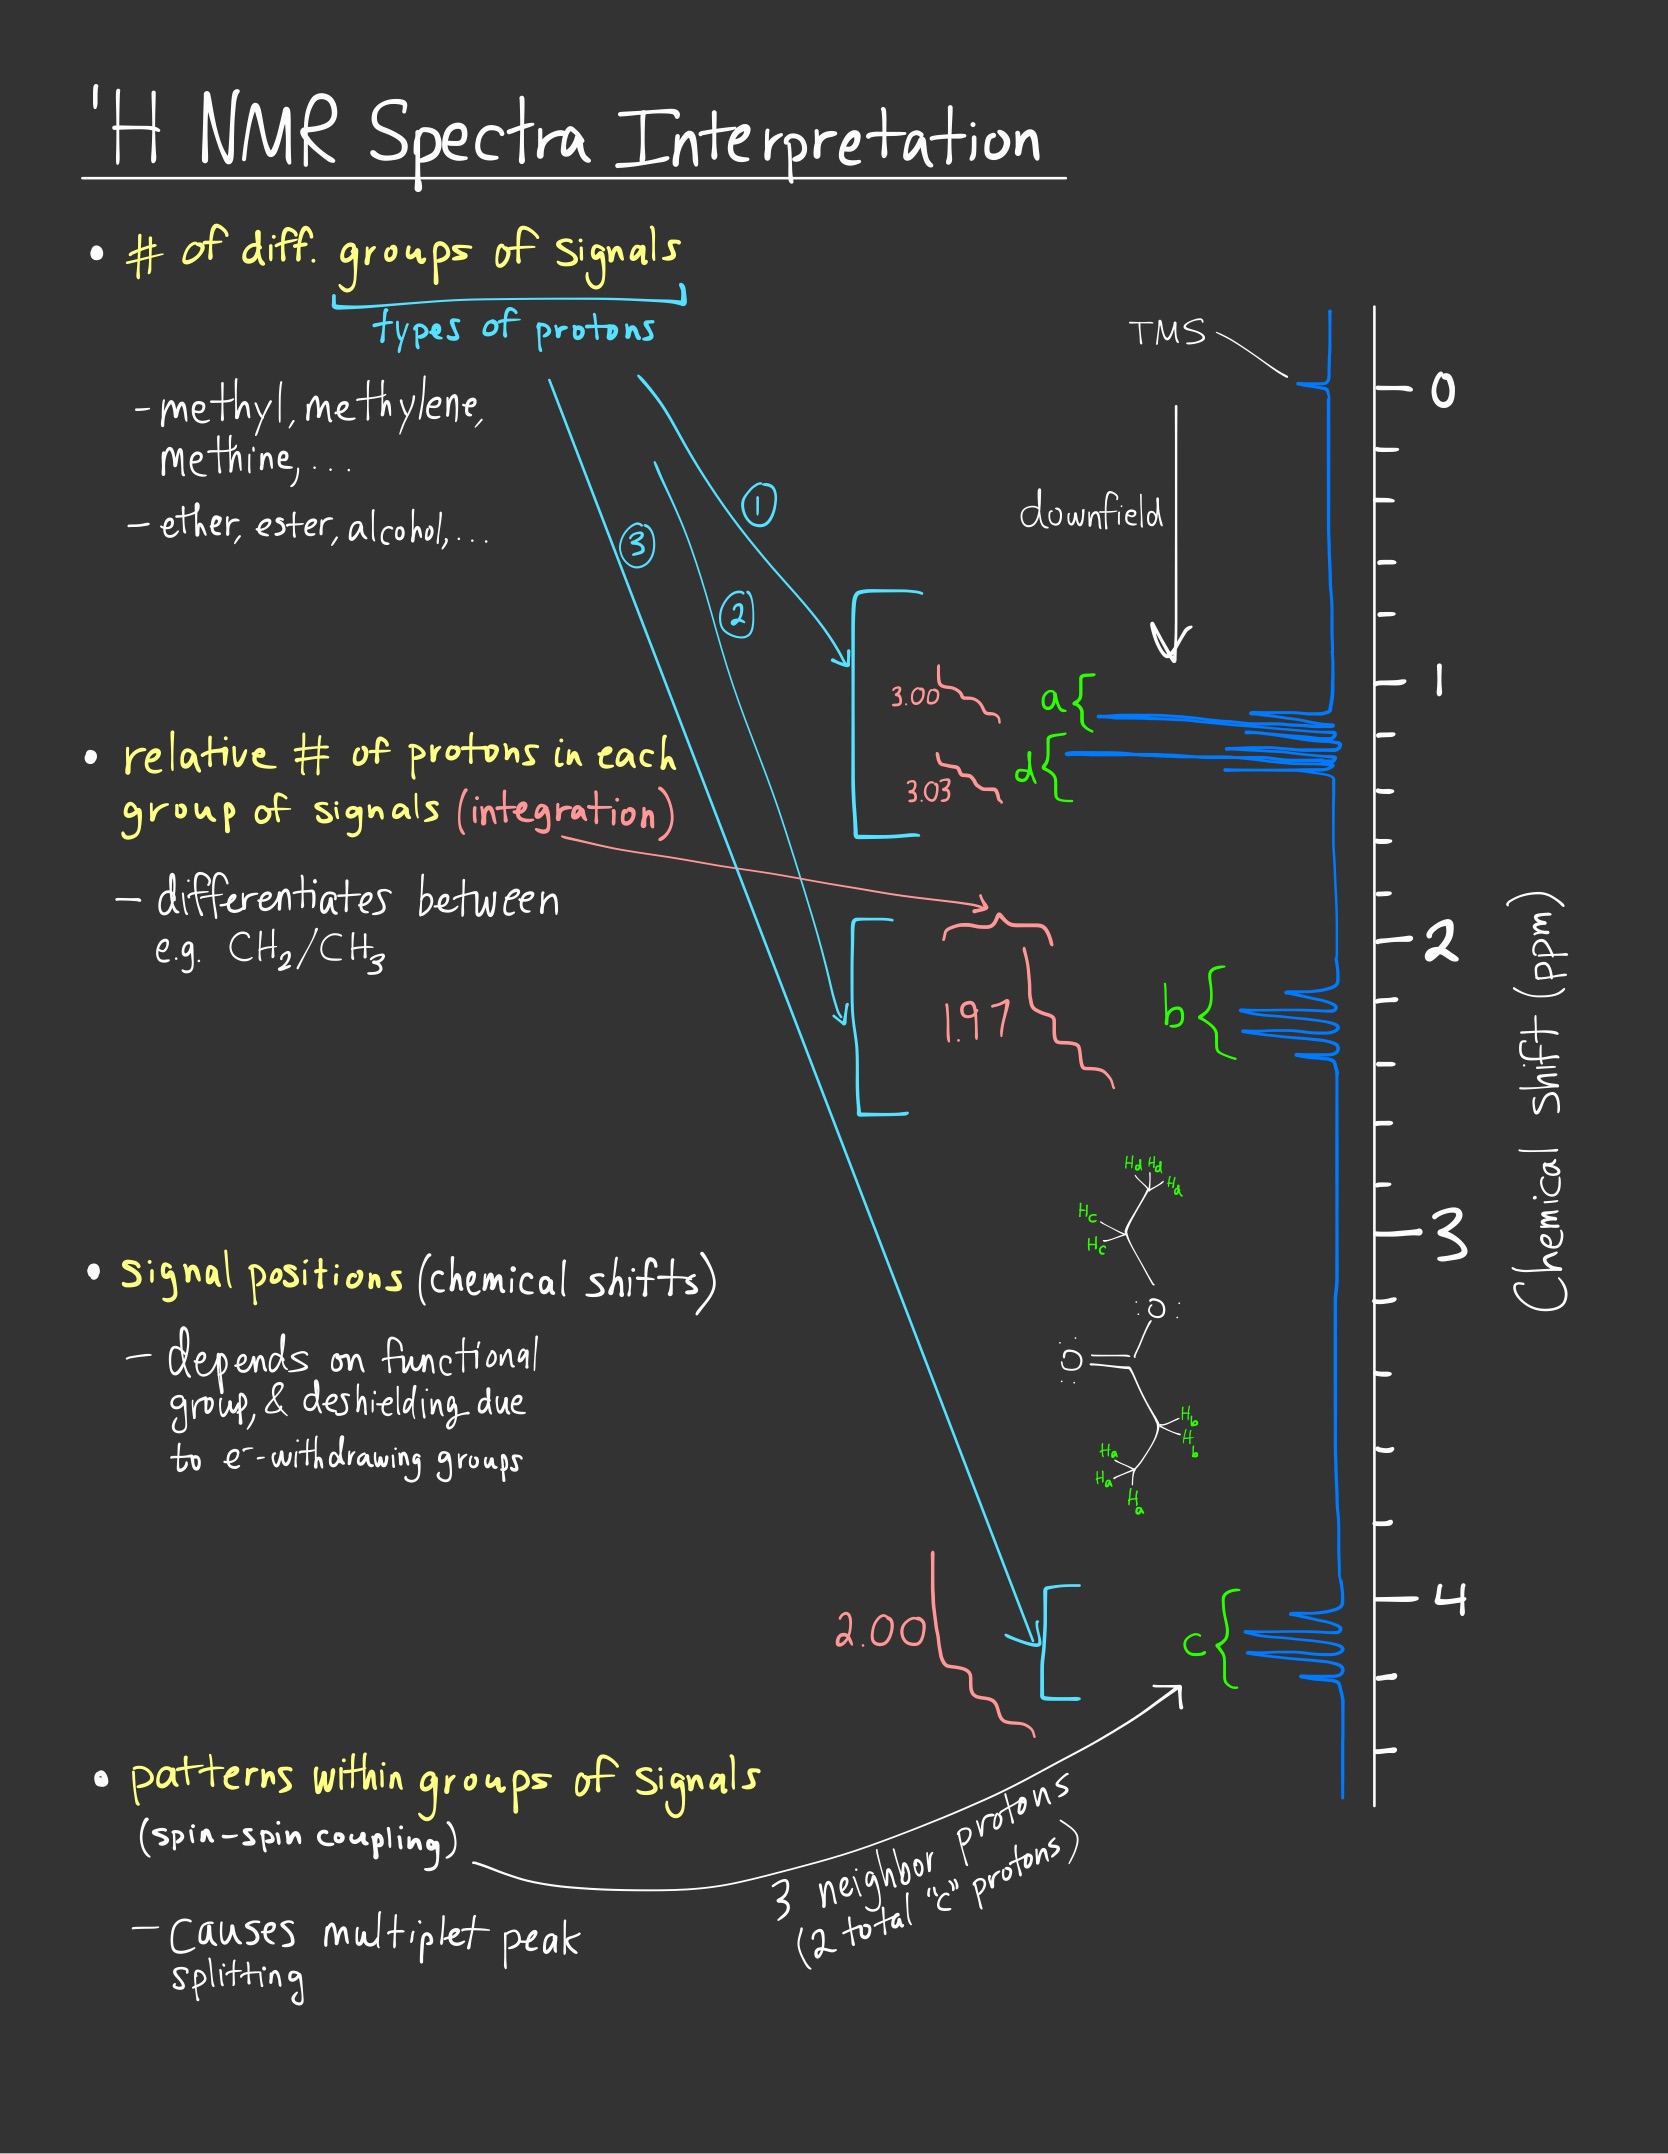 ¹H NMR Spectra Interpretation
• # of diff. groups of signals
types of protons
- methyl, methylene,
methine, ...
- ether, ester, alcohol, ...
①
③
②
• relative # of protons in each
group of signals (integration)
- differentiates between
e.g. CH₂/CH₃
• signal positions (chemical shifts)
- depends on functional
group, & deshielding due
to e⁻-withdrawing groups
• patterns within groups of signals
(spin-spin coupling)
- causes multiplet peak
splitting
3 neighbor protons
(2 total "c" protons)
TMS
downfield
3.00
a
3.03
d
1.97
b
Hd Hd
Hd
Hc
Hc
O
O
Hb
Hb
Ha
Ha
Ha
2.00
c
0
1
2
3
4
Chemical shift (ppm)